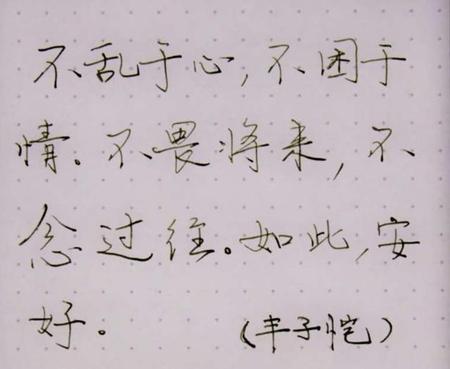 不乱于心,不困于
情。不畏将来,不
念过往。如此,安
好。 (丰子恺)